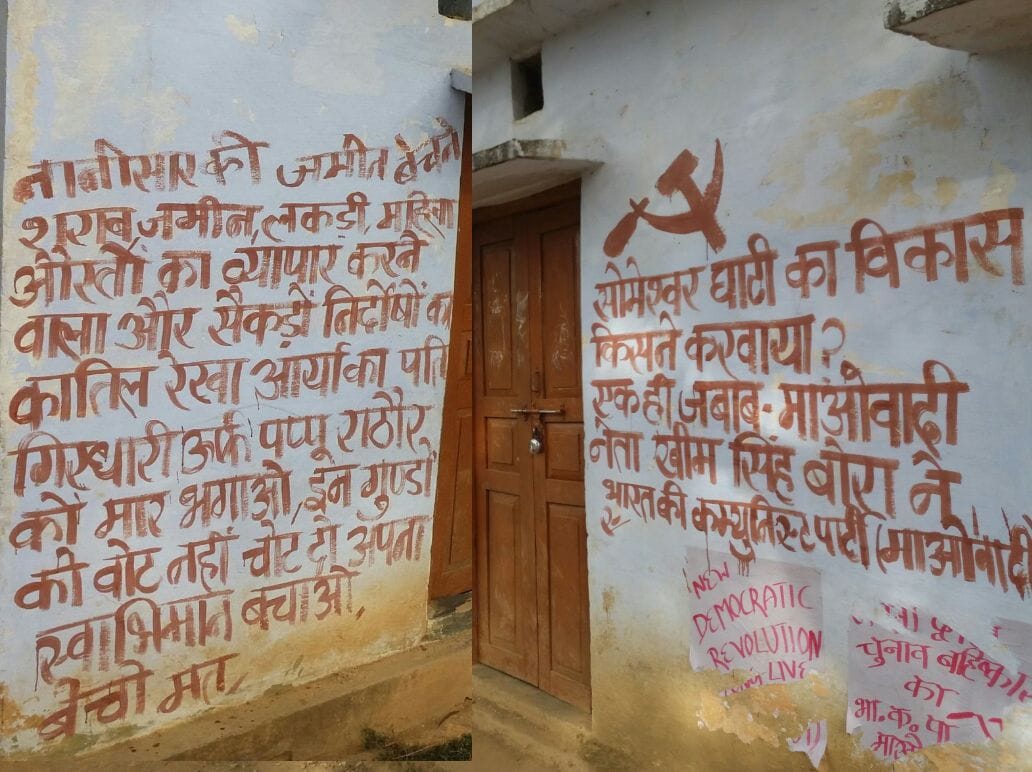 नानीसार की जमीन बेचने
शराब, जमीन, लकड़ी, महिला
औरतों का व्यापार करने
वाला और सैकड़ों निर्दोषों का
कातिल रेखा आर्या का पति
गिरधारी उर्फ पप्पू राठौर
को मार भगाओ, इन गुण्डों
को वोट नहीं चोट दो अपना
स्वाभिमान बचाओ,
बेचो मत,
सोमेश्वर घाटी का विकास
किसने करवाया?
एक ही जबाब - माओवादी
नेता खीम सिंह बोरा ने
भारत की कम्युनिस्ट पार्टी (माओवादी
NEW
DEMOCRATIC
REVOLUTION
LIVE
चुनाव बहिष्कार
का
भा. क. पा